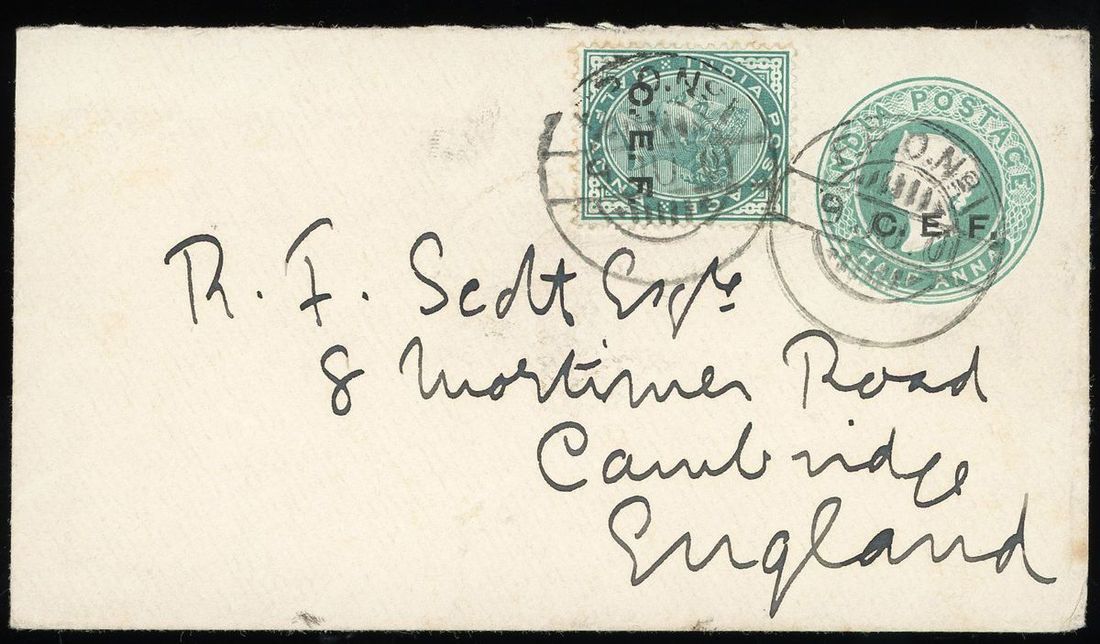 INDIA POSTAGE
HALF ANNA
C. E. F.
INDIA POSTAGE
HALF ANNA
C. E. F.
R. F. Scott Esqre
8 Mortimer Road
Cambridge
England